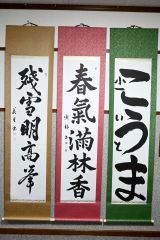 こうま
春氣滿林香
殘雪明高峯